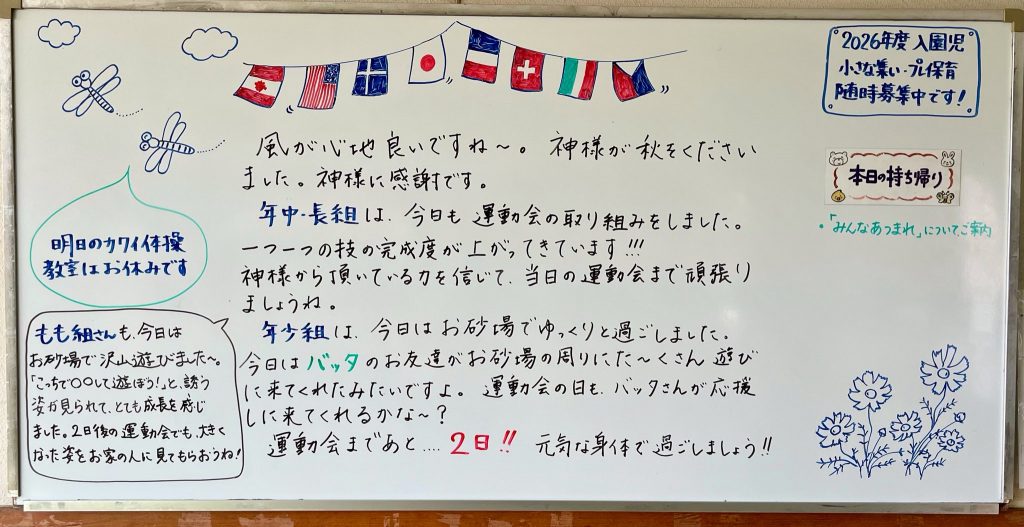 2026年度 入園児
小さな集い・プレ保育
随時募集中です!
風が心地良いですね〜。 神様が秋をください
ました。神様に感謝です。
年中・長組は、今日も 運動会の取り組みをしました。
一つ一つの技の完成度が上がってきています!!!
神様から頂いている力を信じて、当日の運動会まで頑張り
ましょうね。
年少組は、今日はお砂場でゆっくりと過ごしました。
今日はバッタのお友達がお砂場の周りにた〜くさん 遊び
に来てくれたみたいですよ。 運動会の日も、バッタさんが応援
しに来てくれるかな〜?
運動会まであと.... 2日!! 元気な身体で過ごしましょう!!
本日の持ち帰り
・「みんなあつまれ」についてご案内
明日のカワイ体操
教室はお休みです
もも組さんも、今日は
お砂場で沢山遊びました〜。
「こっちで〇〇して遊ぼう!」と、誘う
姿が見られて、とても成長を感じ
ました。2日後の運動会でも、大きく
なった姿をお家の人に見てもらおうね!